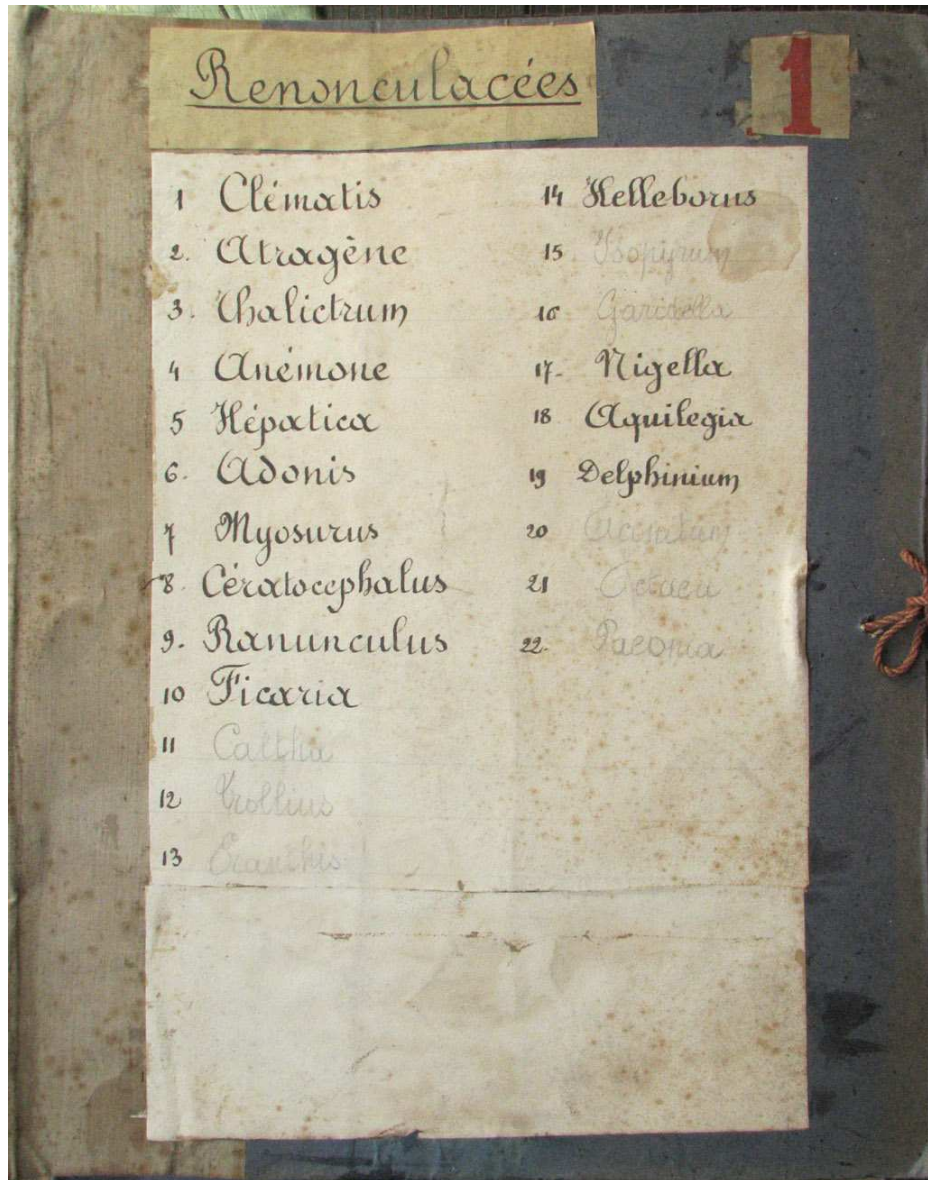 Renonculacées
1
1 Clématis
2. Atragène
3. Thalictrum
4 Anémone
5 Hépatica
6. Adonis
7 Myosurus
8. Cératocephalus
9. Ranunculus
10 Ficaria
11 Caltha
12 Trollius
13 Eranthis
14 Helleborus
15 Isopyrum
16 Garidella
17. Nigella
18 Aquilegia
19 Delphinium
20 Aconitum
21 Actaea
22. Paeonia